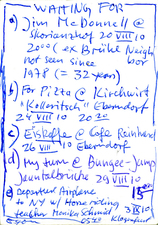 WAITING FOR
a) Jim McDonnell @
Skorianzhof 20 VIII 10
2000 (ex Brühl Neighbor
not seen since
1978 (= 32 years)
b) for Pizza @ Kirchwirt
"Kolloritsch" Eberndorf
24 VIII 10 20
c) Eiskaffee @ Cafe Reinhard
26 VIII 10 Eberndorf
d) My turn @ Bungee-Jump
Jauntalbrücke 29 VIII 10
e) Departure Airplane
to NY w Homeriding
teacher Monika Schmid 3 IX 10
Klagenfurt